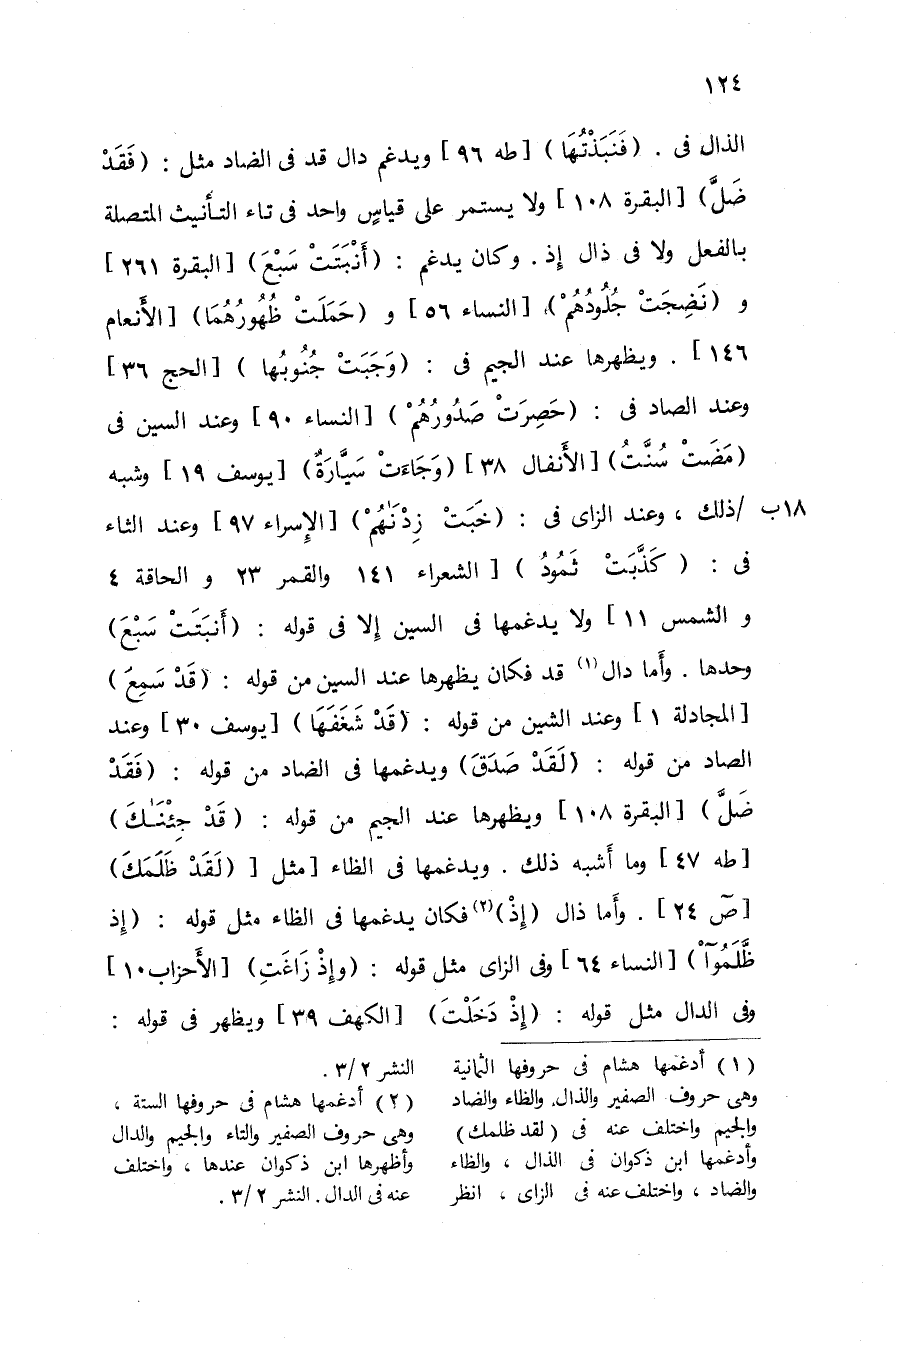 ١٢٤
الذال فى . (فَنَبَذْتُهَا) [طه ٩٦] ويدغم دال قد فى الضاد مثل : (فَقَدْ
ضَلَّ) [البقرة ١٠٨] ولا يستمر على قياسٍ واحد فى تاء التأنيث المتصلة
بالفعل ولا فى ذال إذ . وكان يدغم : (أَنْبَتَتْ سَبْعَ) [البقرة ٢٦١]
و (نَضِجَتْ جُلُودُهُمْ) [النساء ٥٦] و (حَمَلَتْ ظُهُورُهُمَا) [الأَنعام
١٤٦] . ويظهرها عند الجيم فى : (وَجَبَتْ جُنُوبُها) [الحج ٣٦]
وعند الصاد فى : (حَصِرَتْ صَدُورُهُمْ) [النساء ٩٠] وعند السين فى
(مَضَتْ سُنَّتُ) [الأَنفال ٣٨] (وَجَاءَتْ سَيَّارَةٌ) [يوسف ١٩] وشبه
١٨ب /ذلك ، وعند الزاى فى : (خَبَتْ زِدْنَٰهُمْ) [الإِسراء ٩٧] وعند الثاء
فى : (كَذَّبَتْ ثَمُودُ) [الشعراء ١٤١ والقمر ٢٣ و الحاقة ٤
و الشمس ١١] ولا يدغمها فى السين إلا فى قوله : (أَنبَتَتْ سَبْعَ)
وحدها . وأَما دال(١) قد فكان يظهرها عند السين من قوله : (قَدْ سَمِعَ)
[المجادلة ١] وعند الشين من قوله : (قَدْ شَغَفَهَا) [يوسف ٣٠] وعند
الصاد من قوله : (لَقَدْ صَدَقَ) ويدغمها فى الضاد من قوله : (فَقَدْ
ضَلَّ) [البقرة ١٠٨] ويظهرها عند الجيم من قوله : (قَدْ جِئْنَٰكَ)
[طه ٤٧] وما أَشبه ذلك . ويدغمها فى الظاء [مثل [ (لَقَدْ ظَلَمَكَ)
[صٓ ٢٤] . وأَما ذال (إِذْ)(٢) فكان يدغمها فى الظاء مثل قوله : (إِذ
ظَّلَمُوٓاْ) [النساء ٦٤] وفى الزاى مثل قوله : (وإِذْ زَاغَتِ) [الأَحزاب١٠]
وفى الدال مثل قوله : (إِذْ دَخَلْتَ) [الكهف ٣٩] ويظهر فى قوله :
(١) أدغمها هشام فى حروفها الثمانية
وهى حروف الصفير والذال والظاء والضاد
والجيم واختلف عنه فى (لقد ظلمك)
وأدغمها ابن ذكوان فى الذال ، والظاء
والضاد ، واختلف عنه فى الزاى ، انظر
النشر ٣/٢ .
(٢) أدغمها هشام فى حروفها الستة ،
وهى حروف الصفير والتاء والجيم والدال
وأظهرها ابن ذكوان عندها ، واختلف
عنه فى الدال . النشر ٣/٢ .